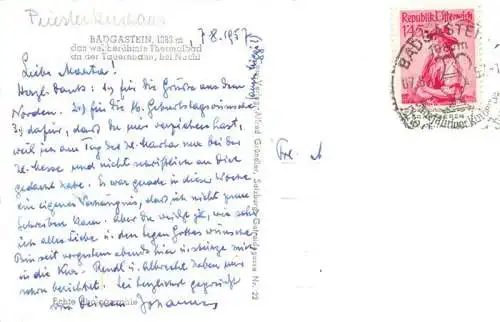 Priesterkurhaus
7/8.1957
BADGASTEIN, 1083 m
das weltberühmte Thermalbad
an der Tauernbahn, bei Nacht
Liebe Martha!
Herzl. Dank: 1.) für die Grüße aus dem
Norden. 2.) für die lb. Geburtstagswünsche
3.) dafür, dass du mir verziehen hast,
weil ich am Tag der hl. Martha nur bei der
hl. Messe und nicht schriftlich an Dich
gedacht habe. Es war gerade in dieser Woche
ein eigenes Verhängnis, dass ich nicht zum
Schreiben kam. Aber du weißt ja, wie sehr
ich alles Liebe u. den Segen Gottes wünsche
Bin seit vorgestern abends hier u. steige
in die Kur. Rendl u. Albrecht haben mir
schon berichtet. Sei herzlichst gegrüßt
von deinem Johannes
Echte Photographie
Alfred Gründler, Salzburg
Nr. 22
Republik Österreich
1·45 S
BADGASTEIN